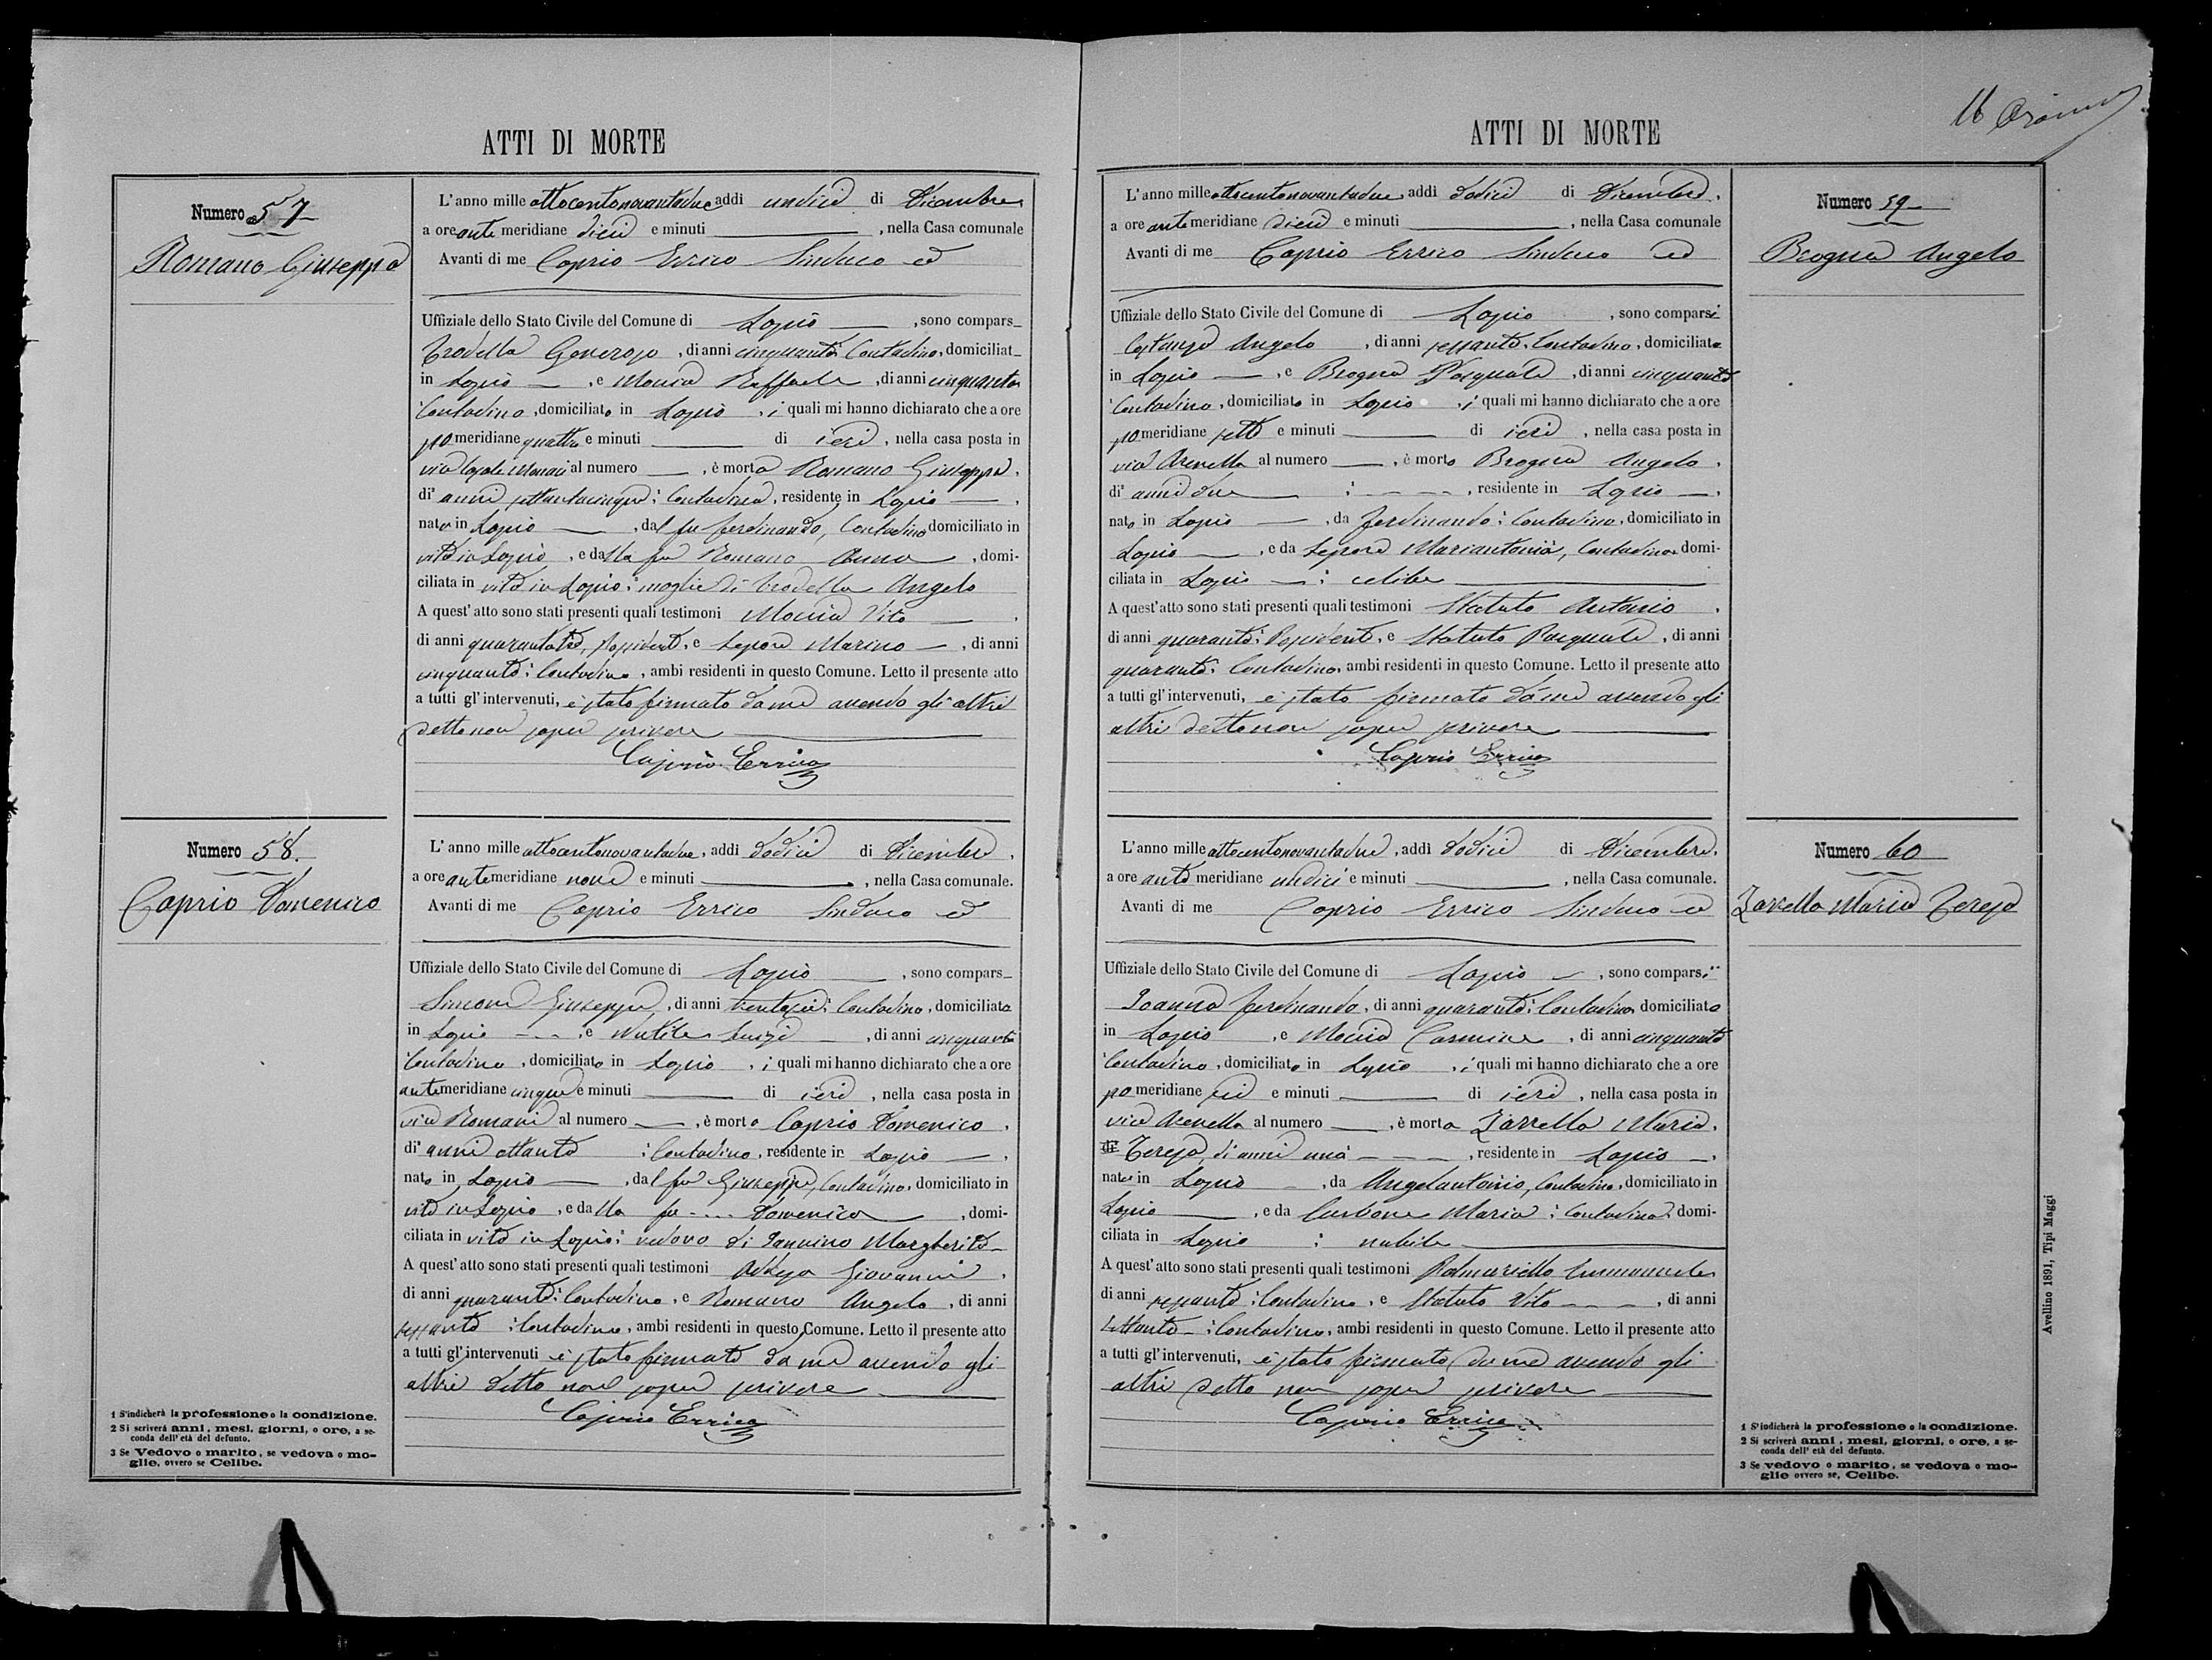 ATTI DI MORTE
Numero 57
Romano Giuseppa
L'anno mille ottocentonovantadue addì undici di Dicembre
a ore ante meridiane dieci e minuti , nella Casa comunale
Avanti di me Caprio Errico Sindaco ed
Uffiziale dello Stato Civile del Comune di Lapio , sono compars
Trodella Generoso , di anni cinquanta Contadino, domiciliat
in Lapio , e Moccia Raffaele , di anni cinquanta
Contadino , domiciliato in Lapio , i quali mi hanno dichiarato che a ore
po meridiane quattro e minuti di ieri , nella casa posta in
via al numero , è morta Romano Giuseppa .
di anni settantacinque : Contadina , residente in Lapio .
nata in Lapio , dal fu Ferdinando, Contadino domiciliato in
vita in Lapio , e dalla fu Romano Anna , domi-
ciliata in vita in Lapio : moglie di Trodella Angelo
A quest'atto sono stati presenti quali testimoni Moccia Vito .
di anni quarantatre, Possidente , e Lepore Marino , di anni
cinquanta : Contadino , ambi residenti in questo Comune. Letto il presente atto
a tutti gl'intervenuti, è stato firmato da me avendo gli altri
detto non saper scrivere
Caprio Errico
Numero 58.
Caprio Domenico
L'anno mille ottocentonovantadue , addì dodici di Dicembre .
a ore antemeridiane nove e minuti , nella Casa comunale.
Avanti di me Caprio Errico Sindaco ed
Uffiziale dello Stato Civile del Comune di Lapio , sono compars
Simone Giuseppe , di anni trentasei : Contadino , domiciliato
in Lapio , e Luigi , di anni cinquanta
Contadino , domiciliato in Lapio , i quali mi hanno dichiarato che a ore
antemeridiane cinque e minuti di ieri , nella casa posta in
via Romani al numero , è morto Caprio Domenico .
di anni ottanta : Contadino , residente in Lapio .
nato in Lapio , dal fu Giuseppe, Contadino , domiciliato in
vita in Lapio , e dalla fu - - - Domenica , domi-
ciliata in vita in Lapio : vedovo di Iannino Margherita
A quest'atto sono stati presenti quali testimoni Giovanni .
di anni quaranta : Contadino , e Romano Angelo , di anni
sessanta : Contadino , ambi residenti in questo Comune. Letto il presente atto
a tutti gl'intervenuti è stato firmato da me avendo gli
altri detto non saper scrivere
Caprio Errico
1 S'indicherà la professione o la condizione.
2 Si scriverà anni, mesi, giorni, o ore, a se-
conda dell'età del defunto.
3 Se Vedovo o marito, se vedova o mo-
glie, ovvero se Celibe.
16
ATTI DI MORTE
Numero 59
Brogna Angelo
L'anno mille ottocentonovantadue , addì dodici di Dicembre .
a ore ante meridiane dieci e minuti , nella Casa comunale
Avanti di me Caprio Errico Sindaco ed
Uffiziale dello Stato Civile del Comune di Lapio , sono comparsi
Costanza Angelo , di anni sessanta , Contadino , domiciliato
in Lapio , e Brogna Pasquale , di anni cinquanta
Contadino , domiciliato in Lapio , i quali mi hanno dichiarato che a ore
po meridiane sette e minuti di ieri , nella casa posta in
via Arenella al numero , è morto Brogna Angelo .
di anni due : - - - , residente in Lapio .
nato in Lapio , da Ferdinando : Contadino , domiciliato in
Lapio , e da Lepore Mariantonia, Contadina domi-
ciliata in Lapio : celibe
A quest'atto sono stati presenti quali testimoni Statuto Antonio .
di anni quaranta : Possidente , e Statuto Pasquale , di anni
quaranta : Contadino , ambi residenti in questo Comune. Letto il presente atto
a tutti gl'intervenuti, è stato firmato da me avendo gli
altri detto non saper scrivere
Caprio Errico
Numero 60
Zarrella Maria Teresa
L'anno mille ottocentonovantadue , addì dodici di Dicembre .
a ore ante meridiane undici e minuti , nella Casa comunale.
Avanti di me Caprio Errico Sindaco ed
Uffiziale dello Stato Civile del Comune di Lapio , sono comparsi
Ioanna Ferdinando , di anni quaranta : Contadino domiciliato
in Lapio , e Moccia Carmine , di anni cinquanta
Contadino , domiciliato in Lapio , i quali mi hanno dichiarato che a ore
po meridiane sei e minuti di ieri , nella casa posta in
via Arenella al numero , è morta Zarrella Maria .
Teresa, di anni uno - - - , residente in Lapio .
nata in Lapio , da Angelantonio, Contadino , domiciliato in
Lapio , e da Carbone Maria : Contadina domi-
ciliata in Lapio : nubile
A quest'atto sono stati presenti quali testimoni Palmariello Emmanuele
di anni sessanta : Contadino , e Statuto Vito - - - , di anni
settanta : Contadino , ambi residenti in questo Comune. Letto il presente atto
a tutti gl'intervenuti, è stato firmato da me avendo gli
altri detto non saper scrivere
Caprio Errico
1 S'indicherà la professione o la condizione.
2 Si scriverà anni, mesi, giorni, o ore, a se-
conda dell'età del defunto.
3 Se vedovo o marito, se vedova o mo-
glie ovvero se, Celibe.
Avellino 1891, Tipi Maggi